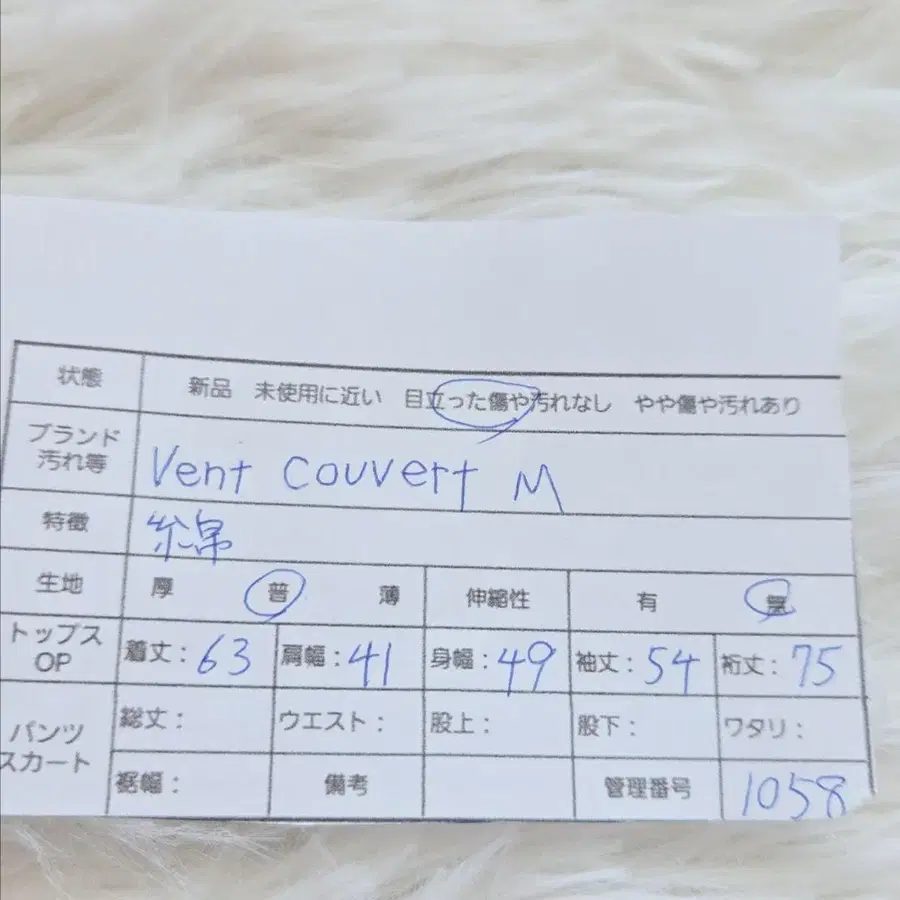 状態 新品 未使用に近い 目立った傷や汚れなし やや傷や汚れあり
ブランド
汚れ等 Vent Couvert M
特徴 綿
生地 厚 普 薄 伸縮性 有 無
トップス
OP 着丈:63 肩幅:41 身幅:49 袖丈:54 裄丈:75
パンツ 総丈: ウエスト: 股上: 股下: ワタリ:
スカート
裾幅: 備考 管理番号 1058